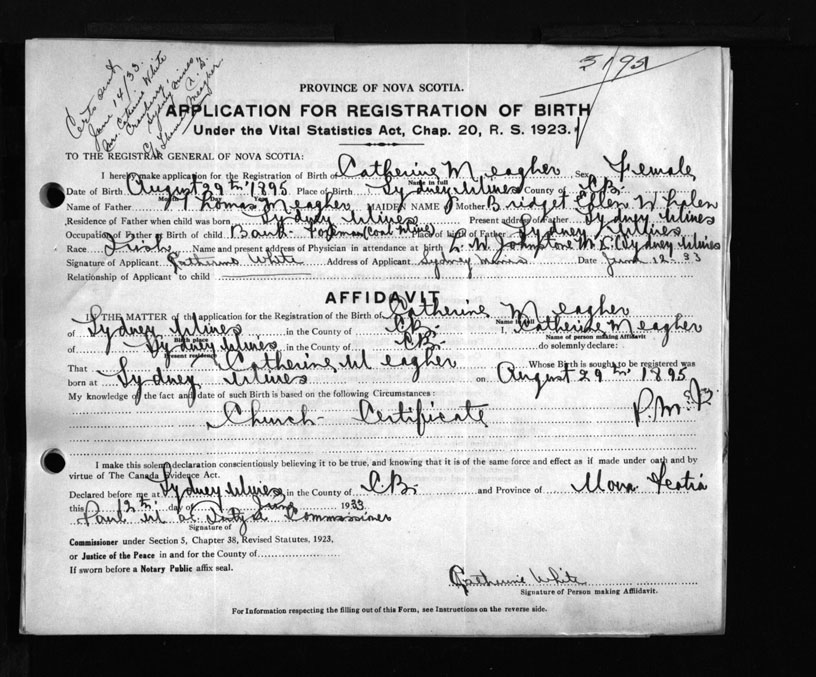 Certs sent
June 14/33
Mrs Catherine White
Sydney Mines
C.B.
Meagher
5195
PROVINCE OF NOVA SCOTIA.
APPLICATION FOR REGISTRATION OF BIRTH
Under the Vital Statistics Act, Chap. 20, R. S. 1923.
TO THE REGISTRAR GENERAL OF NOVA SCOTIA:
I hereby make application for the Registration of Birth of Catherine Meagher Sex Female
Name in full
Date of Birth August 29th 1895 Place of Birth Sydney Mines County of C.B.
Month Day Year
Name of Father Thomas Meagher MAIDEN NAME of Mother Bridget Ellen Whelan
Residence of Father when child was born Sydney Mines Present address of Father Sydney Mines
Occupation of Father at Birth of child Bank Foreman (Coal Mine) Place of birth of Father Sydney Mines
Race Irish Name and present address of Physician in attendance at birth L. W. Johnstone M.D. Sydney Mines
Signature of Applicant Catherine White Address of Applicant Sydney Mines Date June 12-33
Relationship of Applicant to child
AFFIDAVIT
IN THE MATTER of the application for the Registration of the Birth of Catherine Meagher
Name in full
of Sydney Mines in the County of C.B. I, Catherine Meagher
Birth place Name of person making Affidavit
of Sydney Mines in the County of C.B. do solemnly declare:
Present residence
That Catherine Meagher Whose Birth is sought to be registered was
born at Sydney Mines on August 29th 1895
My knowledge of the fact and date of such Birth is based on the following Circumstances:
Church Certificate P.M.
I make this solemn declaration conscientiously believing it to be true, and knowing that it is of the same force and effect as if made under oath and by
virtue of The Canada Evidence Act.
Declared before me at Sydney Mines in the County of C.B. and Province of Nova Scotia
this 12th day of June 1933
Paul Commissioner
Signature of
Commissioner under Section 5, Chapter 38, Revised Statutes, 1923,
or Justice of the Peace in and for the County of
If sworn before a Notary Public affix seal.
Catherine White
Signature of Person making Affidavit.
For Information respecting the filling out of this Form, see Instructions on the reverse side.